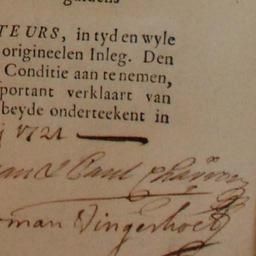 TEURS, in tyd en wyle
origineelen Inleg. Den
Conditie aan te nemen,
portant verklaart van
beyde onderteekent in
1721
Paul
man Vingerhoet